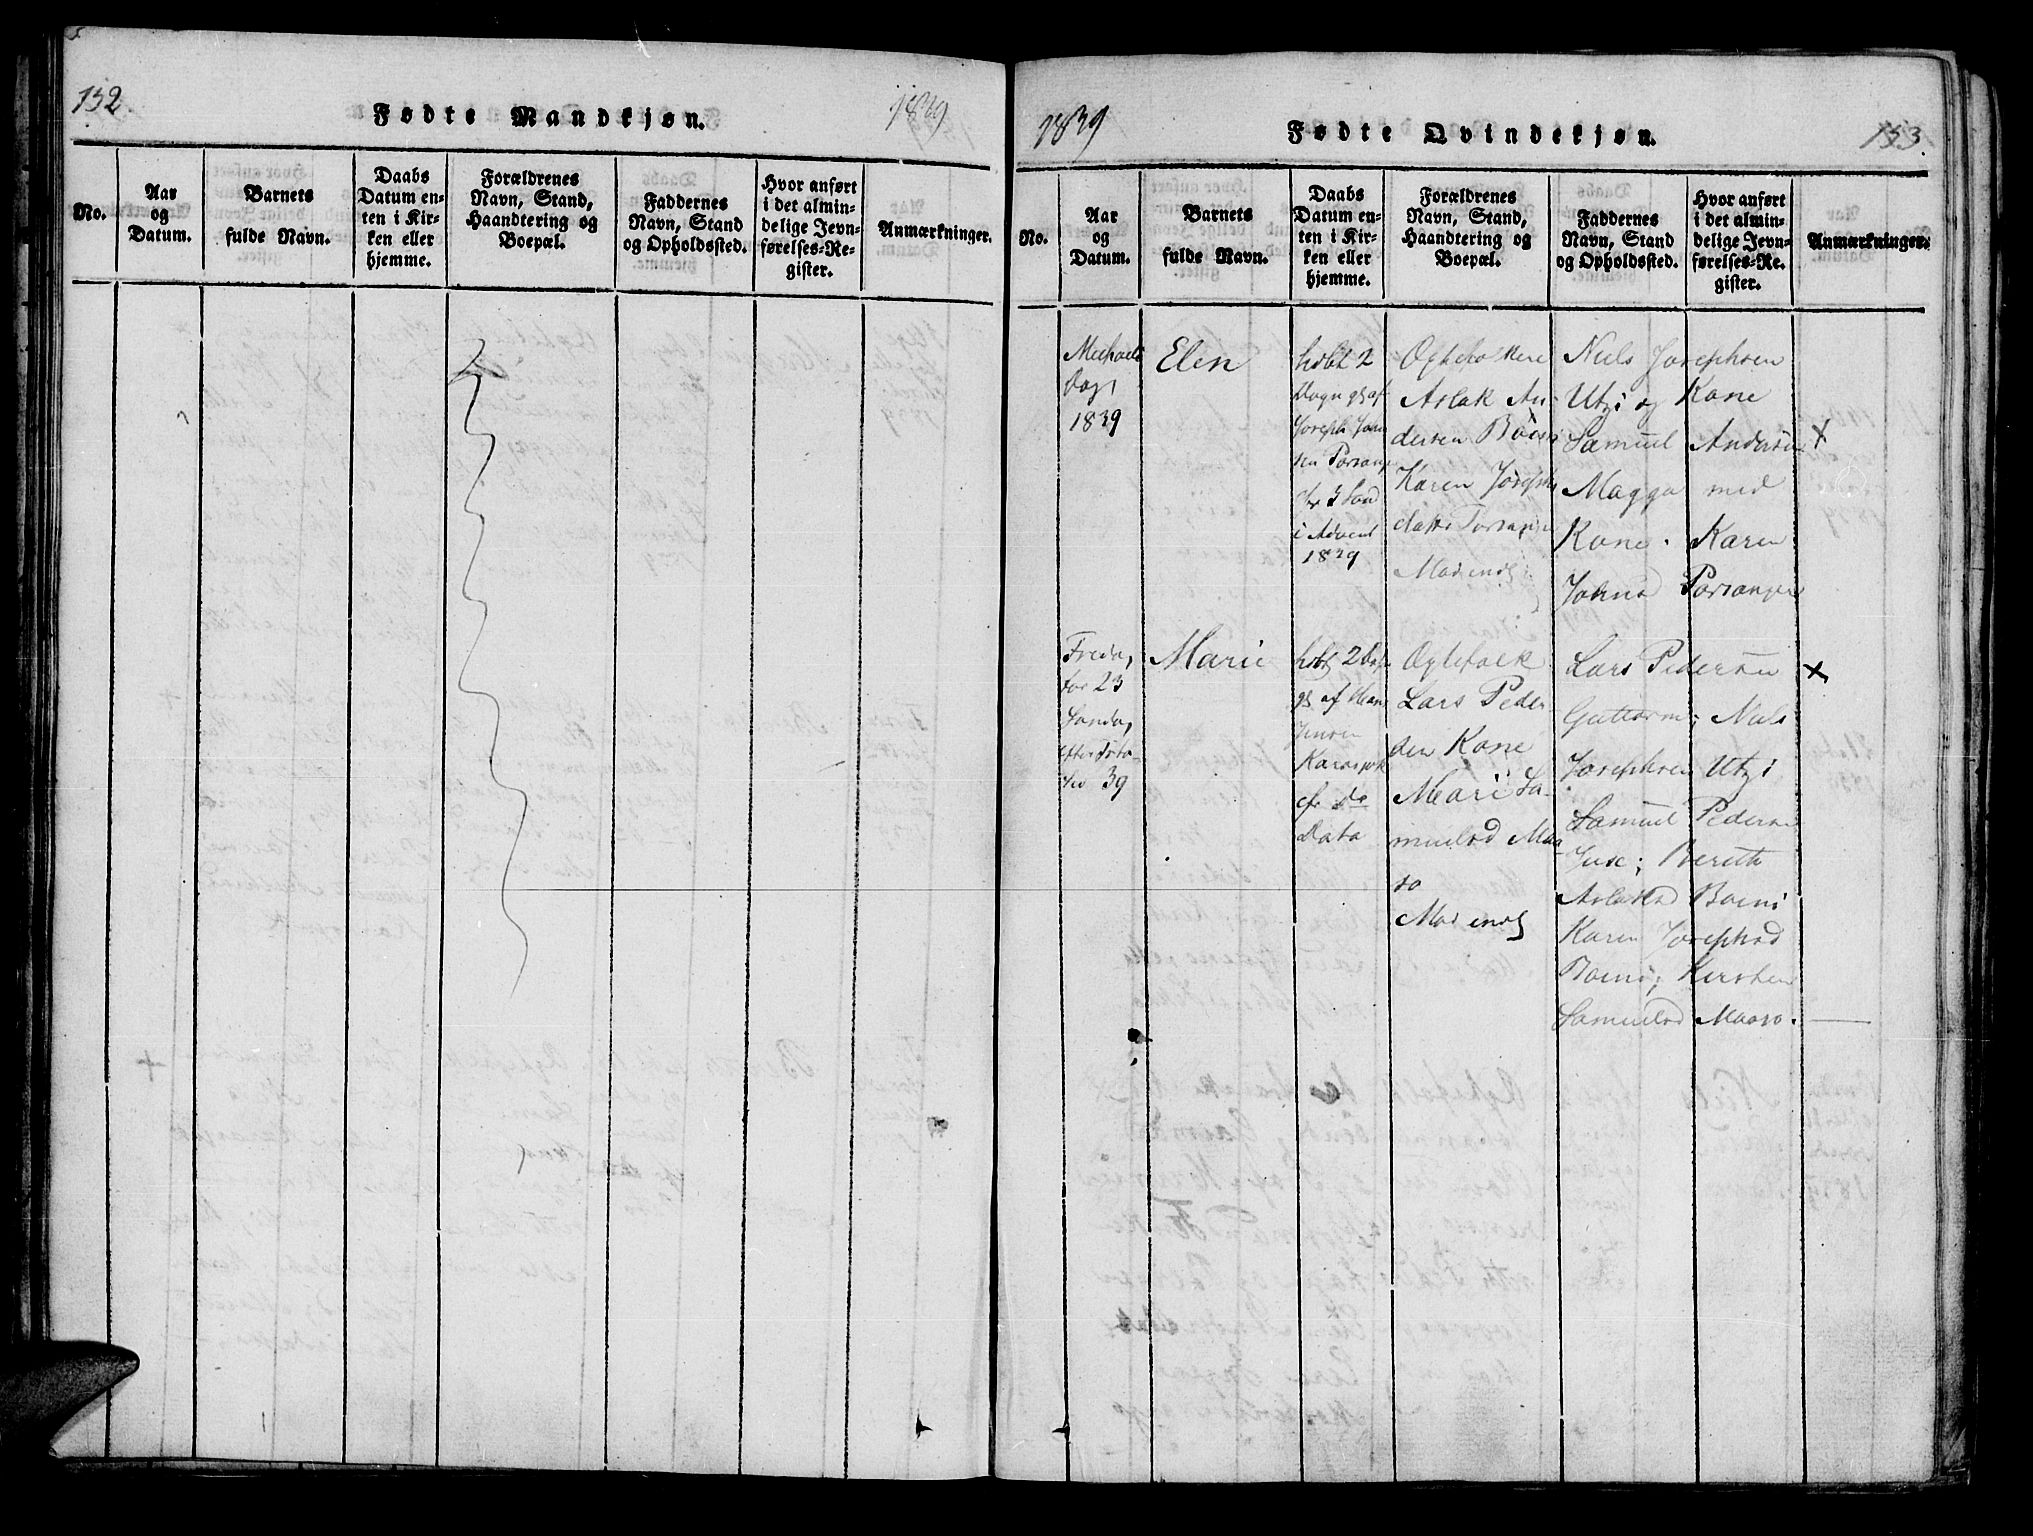 132.
Fødte Mandkjøn.
1839
No.
Aar
og
Datum.
Barnets
fulde Navn.
Daabs
Datum en-
ten i Kir-
ken eller
hjemme.
Forældrenes
Navn, Stand,
Haandtering og
Boepæl.
Faddernes
Navn, Stand
og Opholdssted.
Hvor anført
i det almin-
delige Jevn-
førelses-Re-
gister.
Anmærkninger.
1839
Fødte Qvindekjøn.
133.
No.
Aar
og
Datum.
Barnets
fulde Navn.
Daabs
Datum en-
ten i Kir-
ken eller
hjemme.
Forældrenes
Navn, Stand,
Haandtering og
Boepæl.
Faddernes
Navn, Stand
og Opholdssted.
Hvor anført
i det almin-
delige Jevn-
førelses-Re-
gister.
Anmærkninger.
Michaels
Dag
1839
Elen
hdbt 2
Dogn gl af
Joseph
Porsang
3 Sønd
i Advent
1839
Aslak An-
dersen Boini
Karen Josephs
datter Porsanger
Mas
Niels Josephsen
Utzi og Kone
Samuel Andersen
Magga med
Kone. Karen
Johnsd Porsanger
X
Freda,
for 23
Sønda,
39
Marie
2
gl af
Jensen
Karasjok
do
Dato
Egtefolk
Lars Peder
den Kone
Mari Sa-
muelsd Maa
so
Mas
Lars Pedersen
Guttorm; Niels
Josephsen Utzi
Samuel Pedersen
Juse; Bereth
Aslaksd Boini
Karen Josephsd
Boini; Kirsten
Samuelsd Maaso.
X